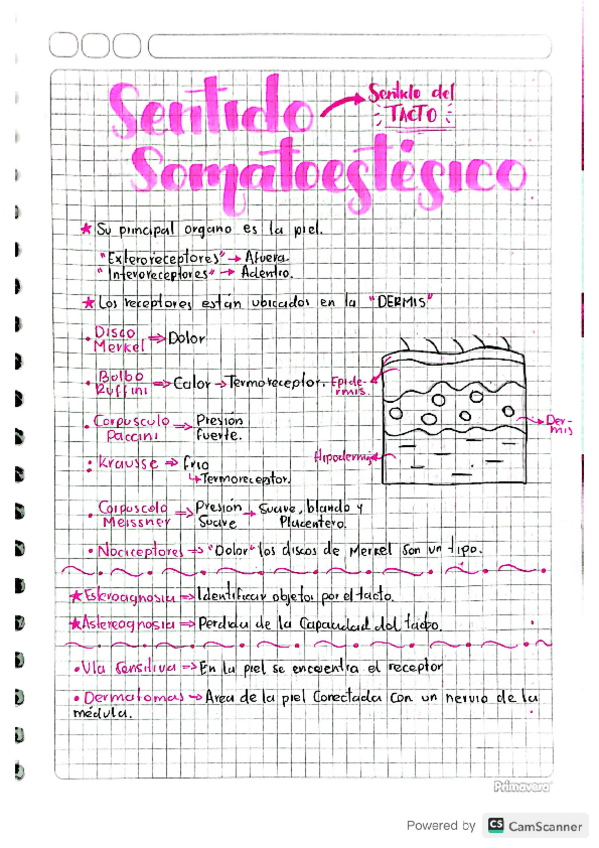 Sentido
Sentido del
TACTO
Somatoestésico
★ Su principal organo es la piel.
"Exteroreceptores" → Afuera.
"Interoreceptores" → Adentro.
★ Los receptores están ubicados en la "DERMIS"
• Disco Merkel ⇒ Dolor
• Bulbo Ruffini ⇒ Calor → Termoreceptor.
Epidermis.
• Corpusculo Paccini ⇒ Presión fuerte.
Dermis
: Krausse ⇒ frio
↳ Termoreceptor.
Hipodermis
• Corpuscolo Meissner ⇒ Presión Suave → Suave, blando y Placentero.
• Nociceptores ⇒ "Dolor" los discos de Merkel son un tipo.
★ Esteroagnosia ⇒ Identificar objetos por el tacto.
★ Astereognosia ⇒ Perdida de la Capacidad del tacto.
• Vía Sensitiva ⇒ En la piel se encuentra el receptor
• Dermatomas → Area de la piel Conectada con un nervio de la
médula.
Primavera
Powered by CS CamScanner